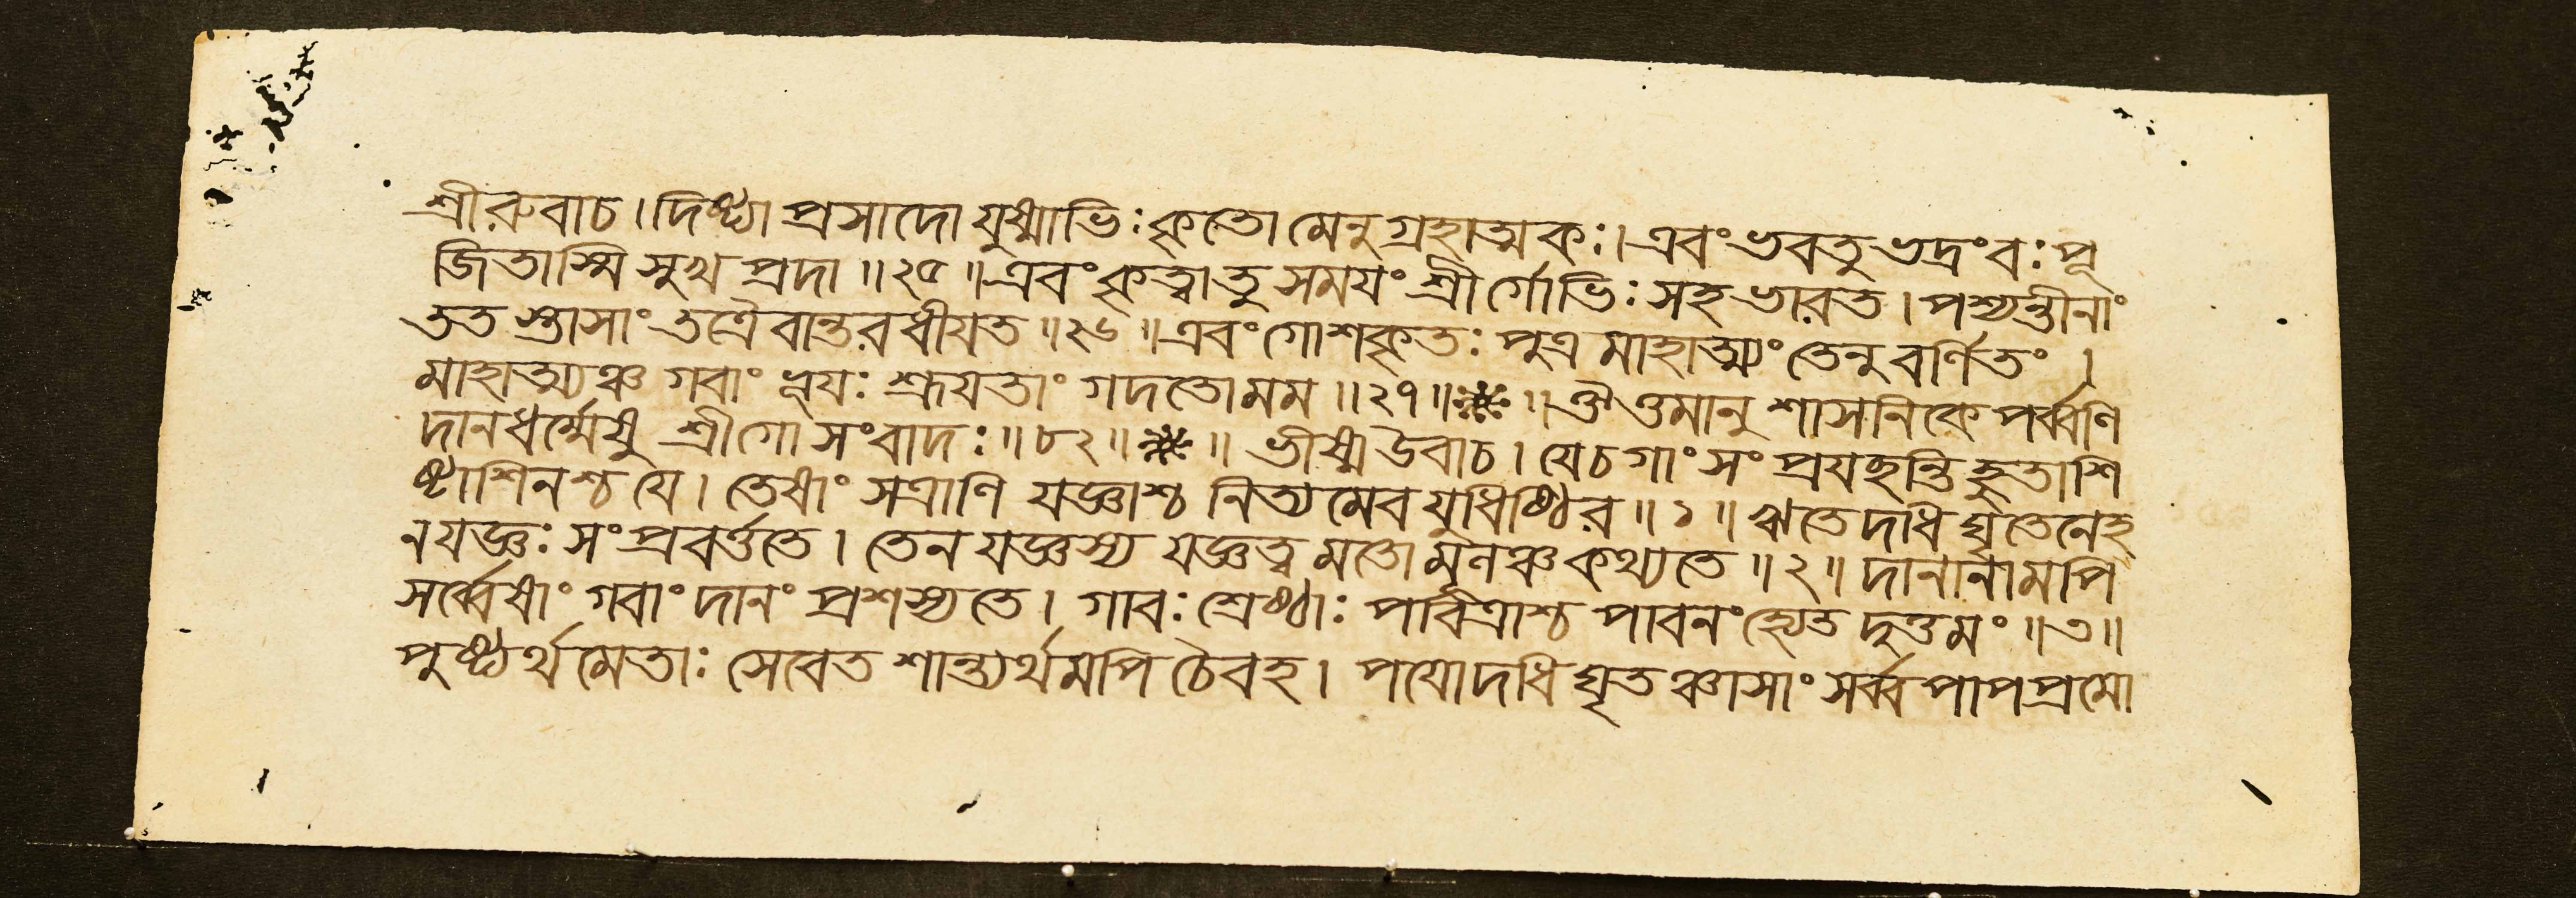 শ্রীরুবাচ। দিষ্ট্যা প্রসাদো যুষ্মাভিঃ কৃতো মেনুগ্রহাত্মকঃ। এবং ভবতু ভদ্রং বঃ পূ
জিতাস্মি সুখপ্রদা॥ ২৫॥ এবং কৃত্বা তু সময়ং শ্রীর্গোভিঃ সহ ভারত। পশ্যন্তীনাং
তত স্তাসাং তত্রৈবান্তরধীয়ত॥ ২৬॥ এবং গোশকৃতঃ পুত্র মাহাত্ম্যং তেনুবর্ণিতং।
মাহাত্ম্যঞ্চ গবাং ভূয়ঃ শ্রূয়তাং গদতো মম॥ ২৭॥ ॥ ঔওমানুশাসনিকে পর্ব্বণি
দানধর্ম্মেষু শ্রীগোসংবাদঃ॥ ৮২॥ ॥ ভীষ্ম উবাচ। যে চ গাং সংপ্রযচ্ছন্তি হুতাশি
ষ্টাশিনশ্চ যে। তেষাং সত্রাণি যজ্ঞাশ্চ নিত্যমেব যুধিষ্ঠির॥ ১॥ ঋতে দধি ঘৃতেনেহ
ন যজ্ঞঃ সংপ্রবর্ত্ততে। তেন যজ্ঞস্য যজ্ঞত্বমতো মূলঞ্চ কথ্যতে॥ ২॥ দানানামপি
সর্ব্বেষাং গবাং দানং প্রশস্যতে। গাবঃ শ্রেষ্ঠাঃ পবিত্রাশ্চ পাবনং হ্যেতদুত্তমং॥ ৩॥
পুষ্ট্যর্থমেতাঃ সেবেত শান্ত্যর্থমপি চৈব হ। পয়োদধি ঘৃতঞ্চাসাং সর্ব্বপাপপ্রমো